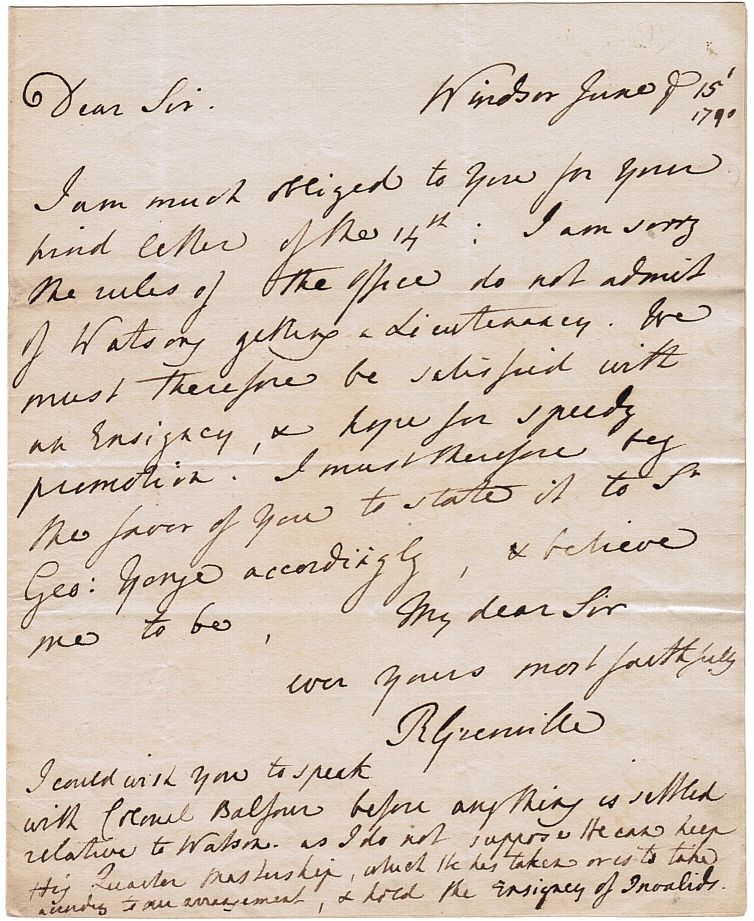 Windsor June ye 15
1790
Dear Sir.
I am much obliged to you for your
kind letter of the 14th: I am sorry
the rules of the office do not admit
of Watsons getting a Lieutenancy. We
must therefore be satisfied with
an Ensigncy, & hope for speedy
promotion. I must therefore beg
the favor of you to state it to Sr
Geo: Yonge accordingly, & believe
me to be, My dear Sir
ever yours most faithfully
RGrenville
I could wish you to speak
with Colonel Balfour before anything is settled
relative to Watson. as I do not suppose He can keep
His Quarter Mastership, which He has taken or is to take
according to our arrangement, & hold the Ensigncy of Invalids.